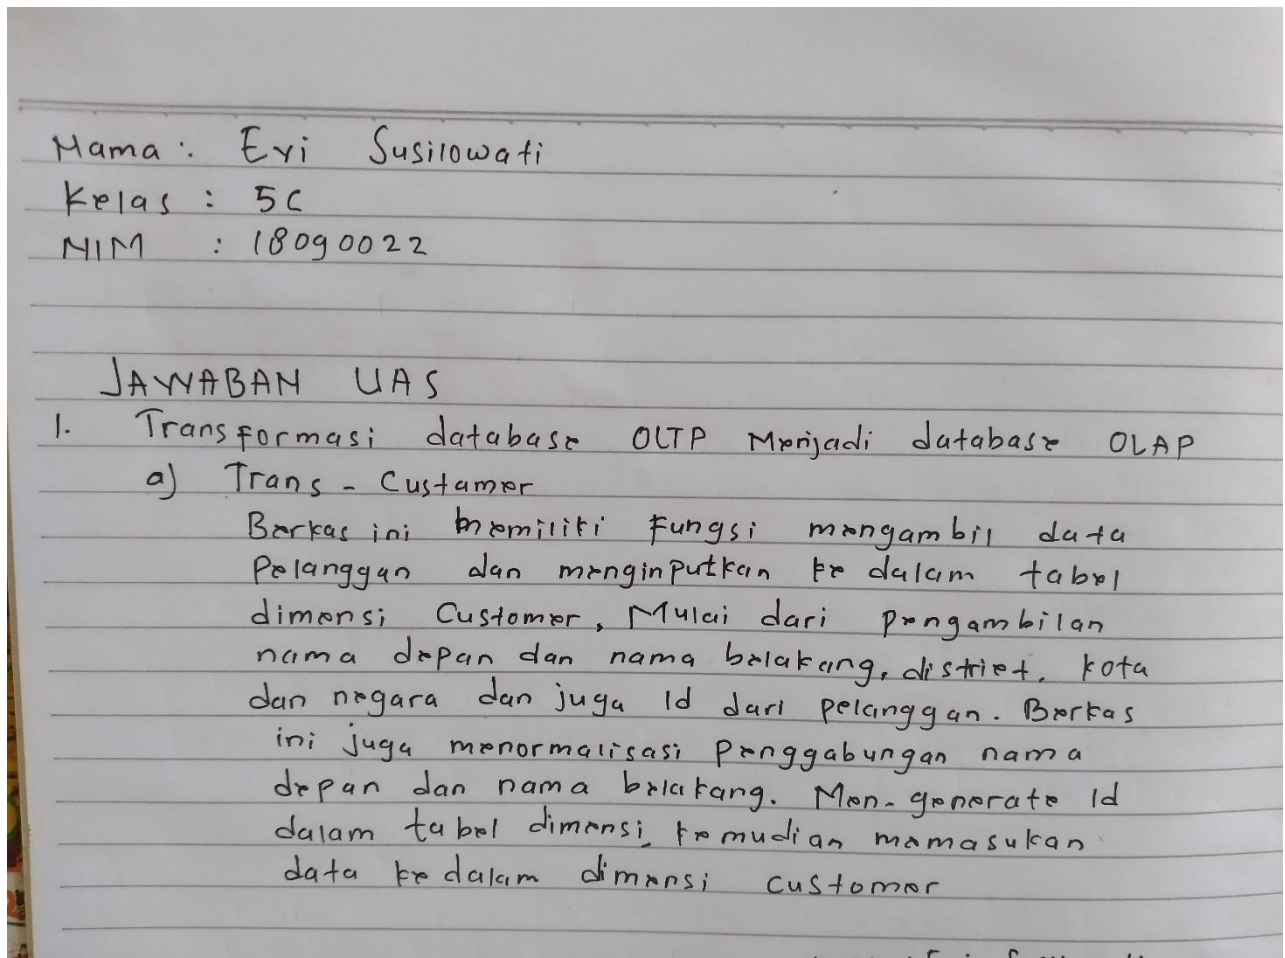 Nama : Evi Susilowati
Kelas : 5C
NIM : 18090022
JAWABAN UAS
1. Transformasi database OLTP Menjadi database OLAP
a) Trans - Custamer
Berkas ini memiliki Fungsi mengambil data
Pelanggan dan menginputkan ke dalam tabel
dimensi Customer, Mulai dari pengambilan
nama depan dan nama belakang, district, kota
dan negara dan juga Id dari pelanggan. Berkas
ini juga menormalisasi Penggabungan nama
depan dan nama belakang. Men-generate Id
dalam tabel dimensi, kemudian memasukan
data ke dalam dimensi customer